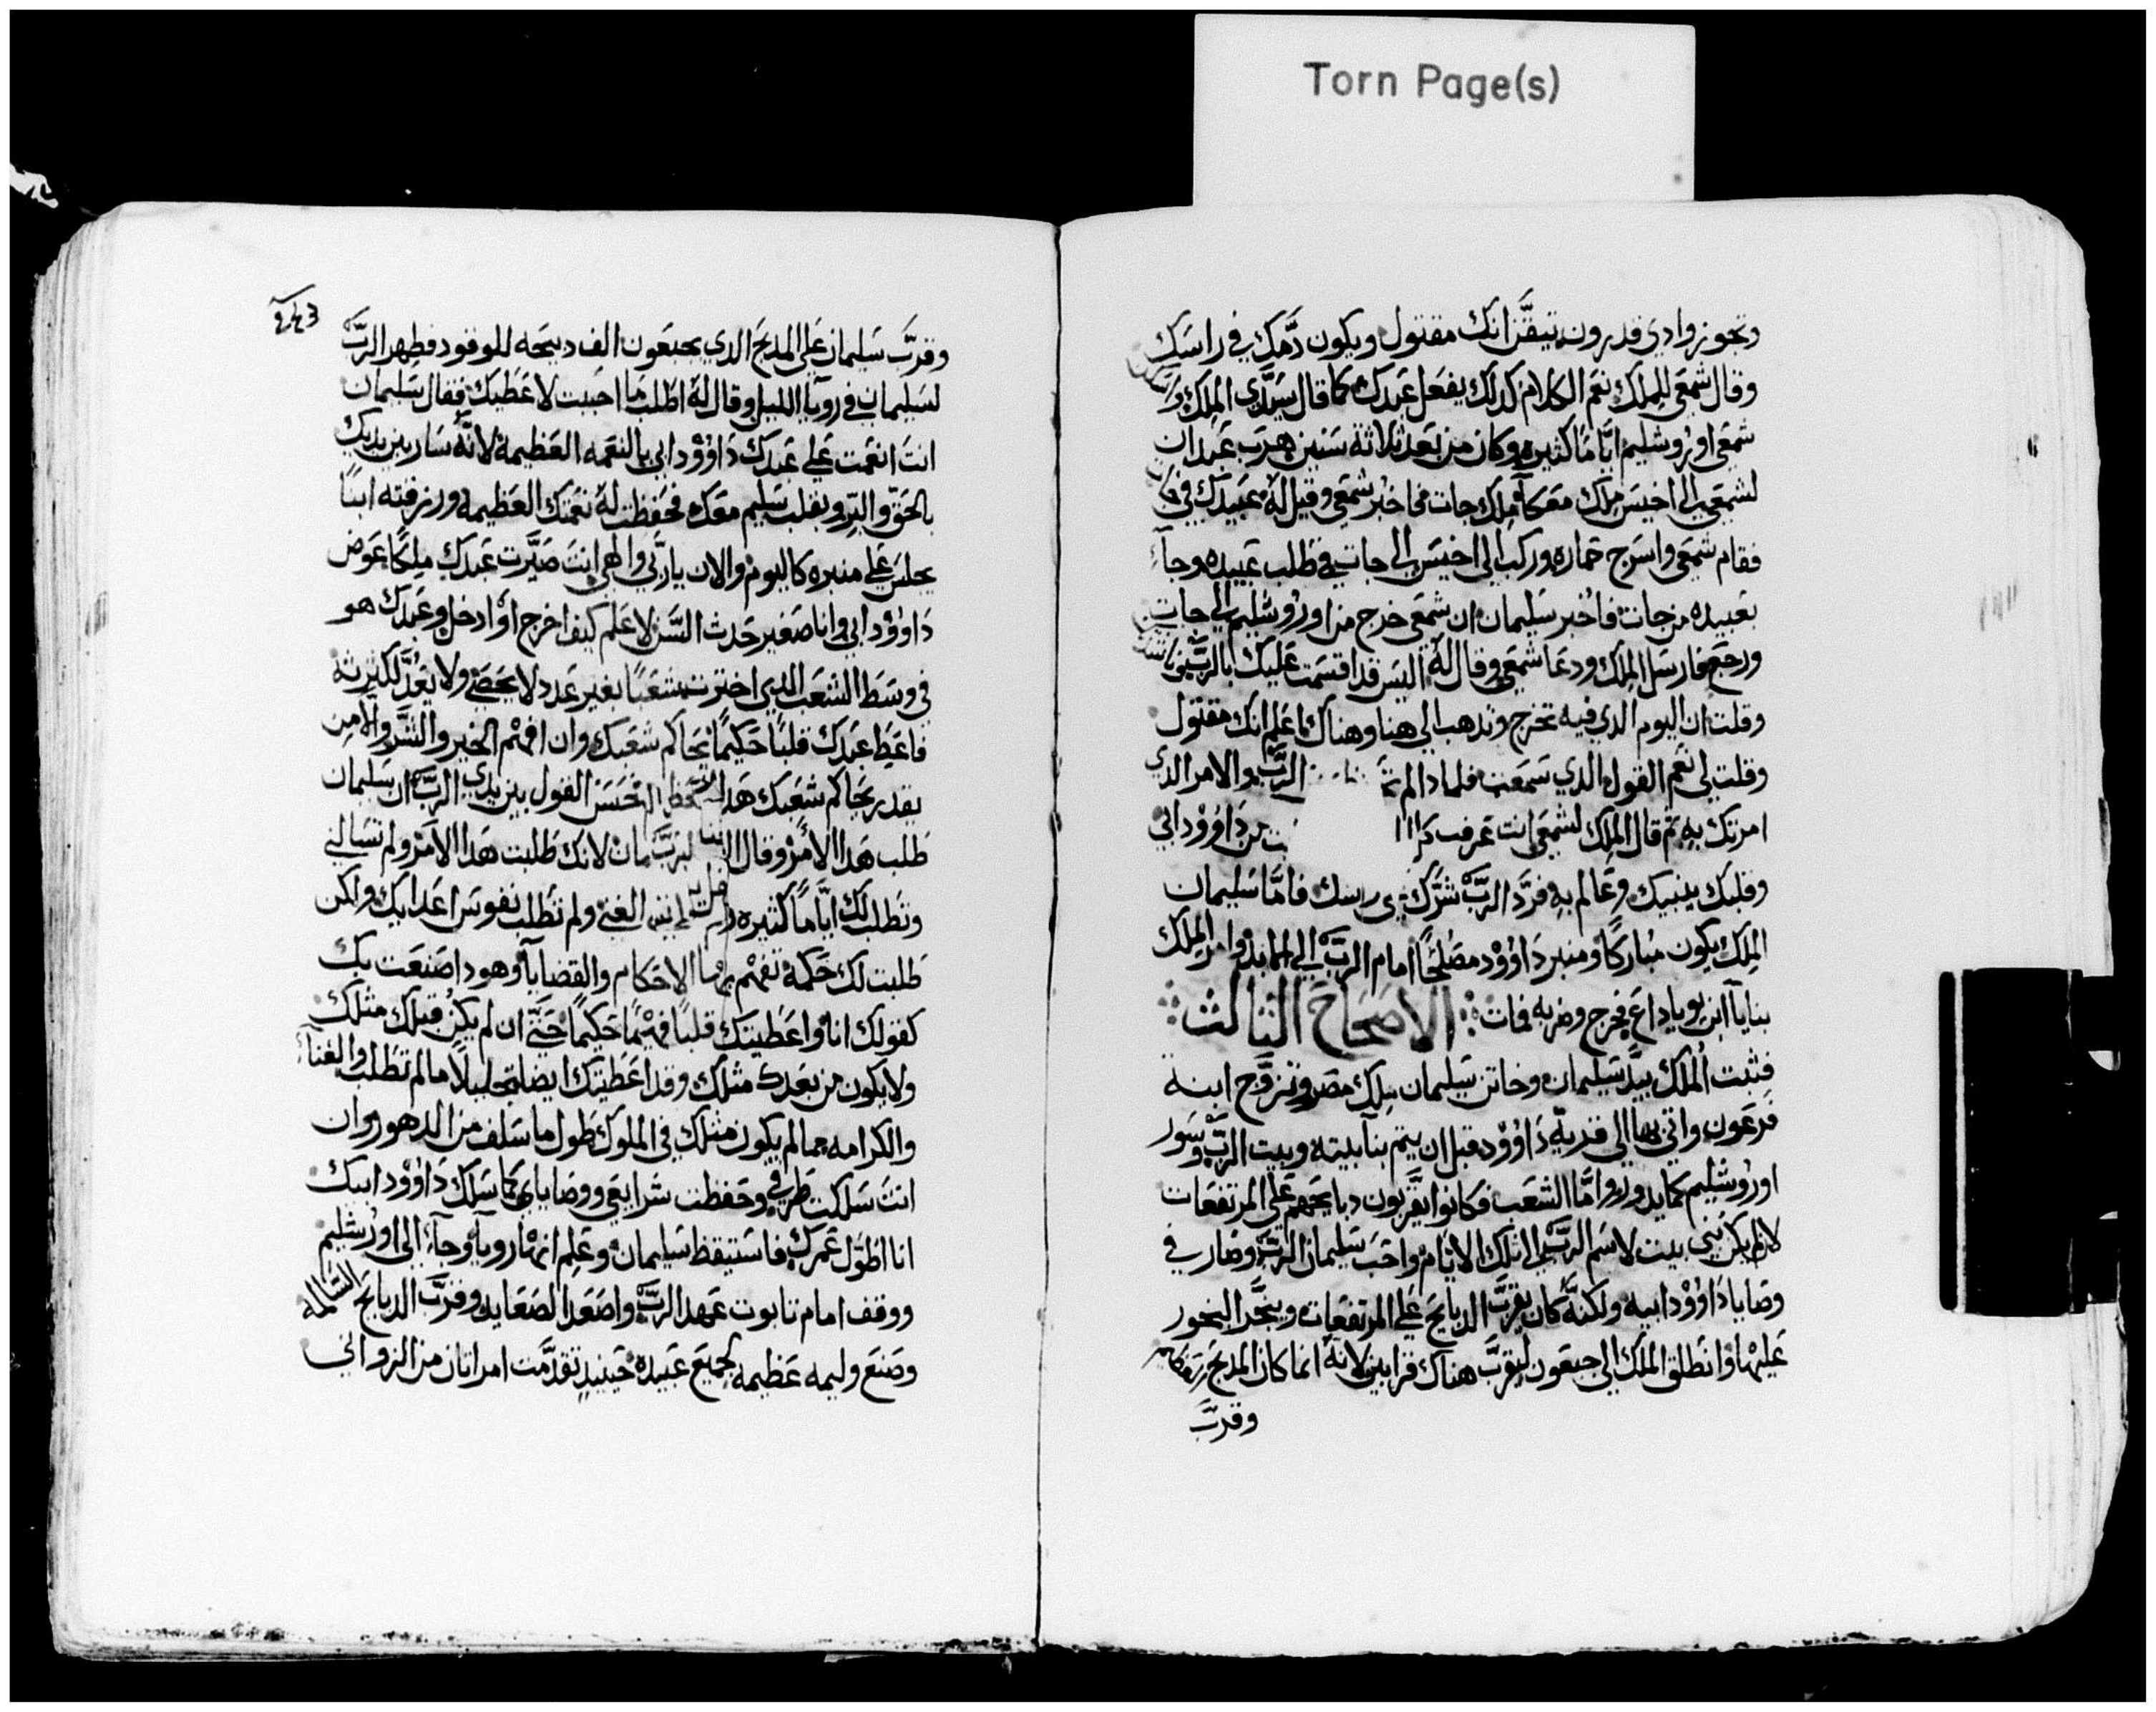 Torn Page(s)
وتجوز وادي قدرون تيقّن انك مقتول ويكون دمّك في راسك
وقال شمعي للملك نعم الكلام كذلك يفعل عبدك كما قال سيّدي الملك
شمعي اوروشليم ايّامًا كثيره وكان من بعد ثلاثة سنين هرب عبدان
لشمعي الى اخيس ملك معكا ملك جات فاخبر شمعي وقيل له عبيدك في
فقام شمعي واسرج حماره وركب الى اخيس الى جات في طلب عبيده وجآء
بعبيده من جات فاخبر سليمان ان شمعي خرج من اوروشليم الى جات
ورجع فارسل الملك ودعا شمعي وقال له اليس قد اقسمت عليك بالربّ
وقلت ان اليوم الدي فيه تخرج وتدهب الى هنا وهناك اعلم انك مقتول
وقلت لي نعم القول الدي سمعت فلمادا لم الربّ والامر الدي
امرتك به ثم قال الملك لشمعي انت تعرف داوود ابي
وقلبك ينبيك وعالم به فردّ الربّ شرّك فامّا سليمان
الملك يكون مباركًا ومنبر داوود مصلحًا امام الربّ الى الابد وامر الملك
بنايا ابن يوياداع فخرج وضربه فمات الاصحاح الثالث
فثبت الملك بيد سليمان وخاتن سليمان ملك مصر وتزوّج ابنة
فرعون واتى بها الى قرية داوود قبل ان يتم بنآ بيته وبيت الربّ وسور
اوروشليم كما يدور وامّا الشعب فكانوا يقرّبون دبايحهم على المرتفعات
لانه لم يكن بني بيت لاسم الربّ الى تلك الايام واحب سليمان الربّ وصار في
وصايا داوود ابيه ولكنّه كان يقرّب الدبايح على المرتفعات ويبخّر البخور
عليها وانطلق الملك الى جبعون ليقرّب هناك قرابين لانه انما كان المدبح
وقرّب
وقرّب سليمان على المدبح الدي بجبعون الف دبيحه للوقود فظهر الربّ
لسليمان في رويآ الليل وقال له اطلب ما احببت لاعطيك فقال سليمان
انت انعمت على عبدك داوود ابي بالنعمه العظيمة لانّه سار بين يديك
بالحق والبرّ وبقلب سليم معك فحفظت له نعمتك العظيمة ورزقته ابنًا
يجلس على منبره كاليوم والان ياربّي والهي انت صيّرت عبدك ملكًا عوض
داوود ابي وانا صغير حدث السّن لا اعلم كيف اخرج او ادخل وعبدك هو
في وسط الشعب الدي اخترت شعبًا بغير عدد لا يحصى ولا يعدّ لكثرته
فاعط عبدك قلبًا حكيمًا يحاكم شعبك وان افهم الخير والشرّ والا من
يقدر يحاكم شعبك هدا فحسن القول بين يدي الربّ ان سليمان
طلب هدا الأمر وقال الربّ لانك طلبت هدا الامر ولم تسالني
وتطلب لك ايّامًا كثيره الغنى ولم تطلب نفوس اعدايك ولكن
طلبت لك حكمة تفهم بها الاحكام والقضايآ وهودا صنعت بك
كقولك انا واعطيتك قلبًا فهمًا حكيمًا حتى ان لم يكن قبلك مثلك
ولا يكون من بعدك مثلك وقد اعطيتك ايضا ما لم تطلب والغنآ
والكرامه مما لم يكون مثلك في الملوك طول ما سلف من الدهور وان
انت سلكت طرقي وحفظت شرايعي ووصاياي كما سلك داوود ابيك
انا اطوّل عمرك فاستيقظ سليمان وعلم انها رويآ وجآء الى اورشليم
ووقف امام تابوت عهد الربّ واصعد الصعايد وقرّب الدبايح السالمه
وصنع وليمه عظيمه لجميع عبيده حينيد تقدّمت امراتان من الزواني